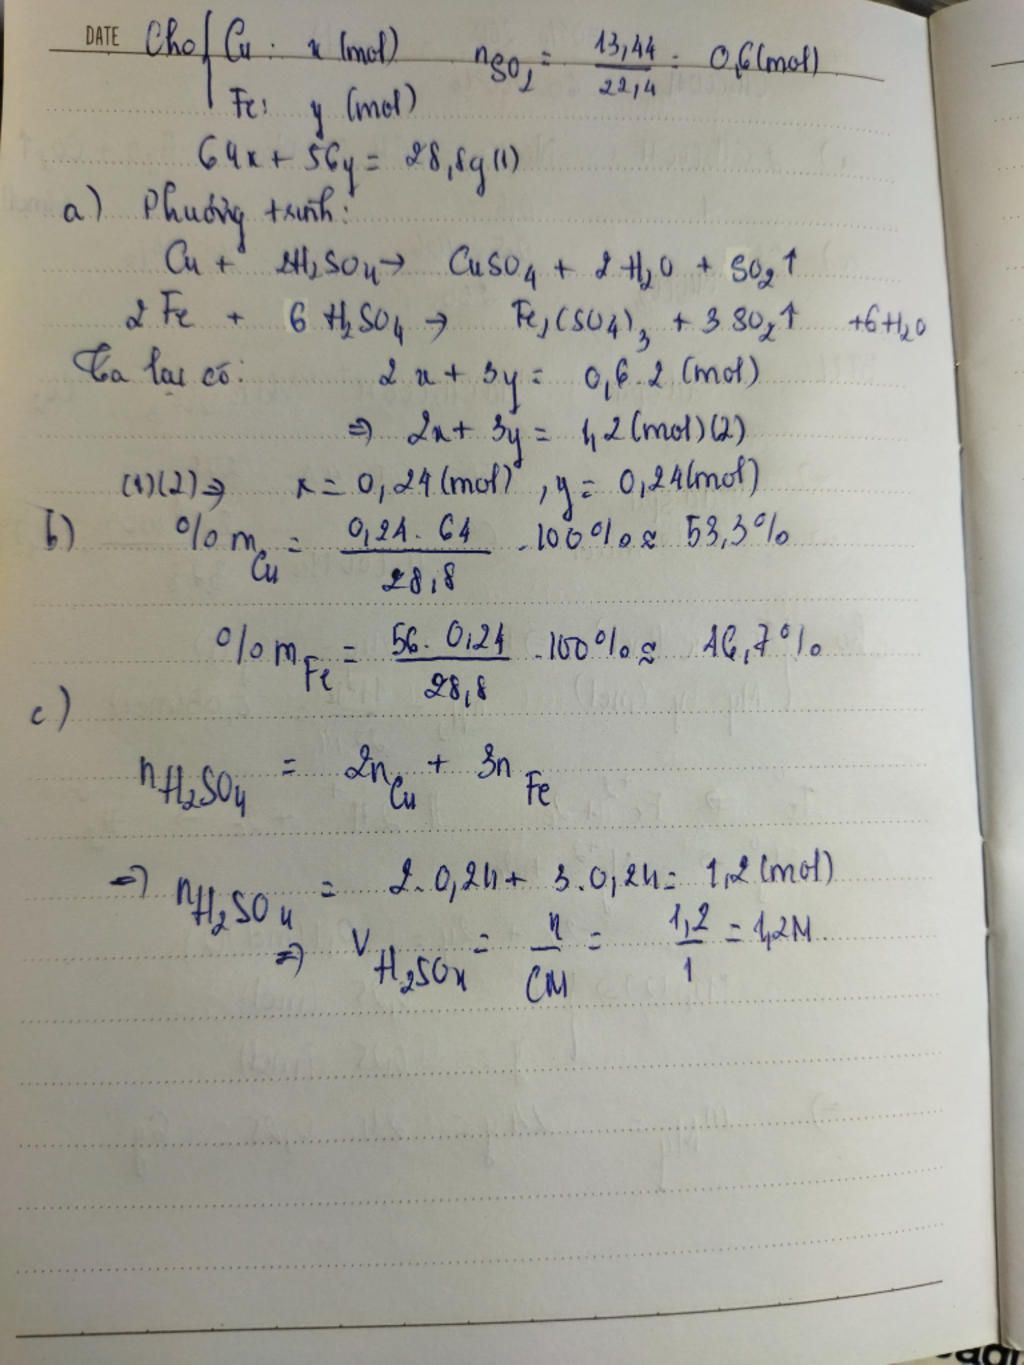 DATE Cho { Cu : x (mol) nSO2 = 13,44/22,4 = 0,6 (mol)
Fe: y (mol)
64x + 56y = 28,8g (1)
a) Phương trình:
Cu + 2H2SO4 → CuSO4 + 2H2O + SO2↑
2Fe + 6H2SO4 → Fe2(SO4)3 + 3SO2↑ + 6H2O
Ta lại có: 2x + 3y = 0,6.2 (mol)
⇒ 2x + 3y = 1,2 (mol) (2)
(1)(2) ⇒ x = 0,24 (mol) , y = 0,24 (mol)
b) %mCu = 0,24.64/28,8 .100% ≈ 53,3%
%mFe = 56.0,24/28,8 .100% ≈ 46,7%
c)
nH2SO4 = 2nCu + 3nFe
⇒ nH2SO4 = 2.0,24 + 3.0,24 = 1,2 (mol)
⇒ VH2SO4 = n/CM = 1,2/1 = 1,2M